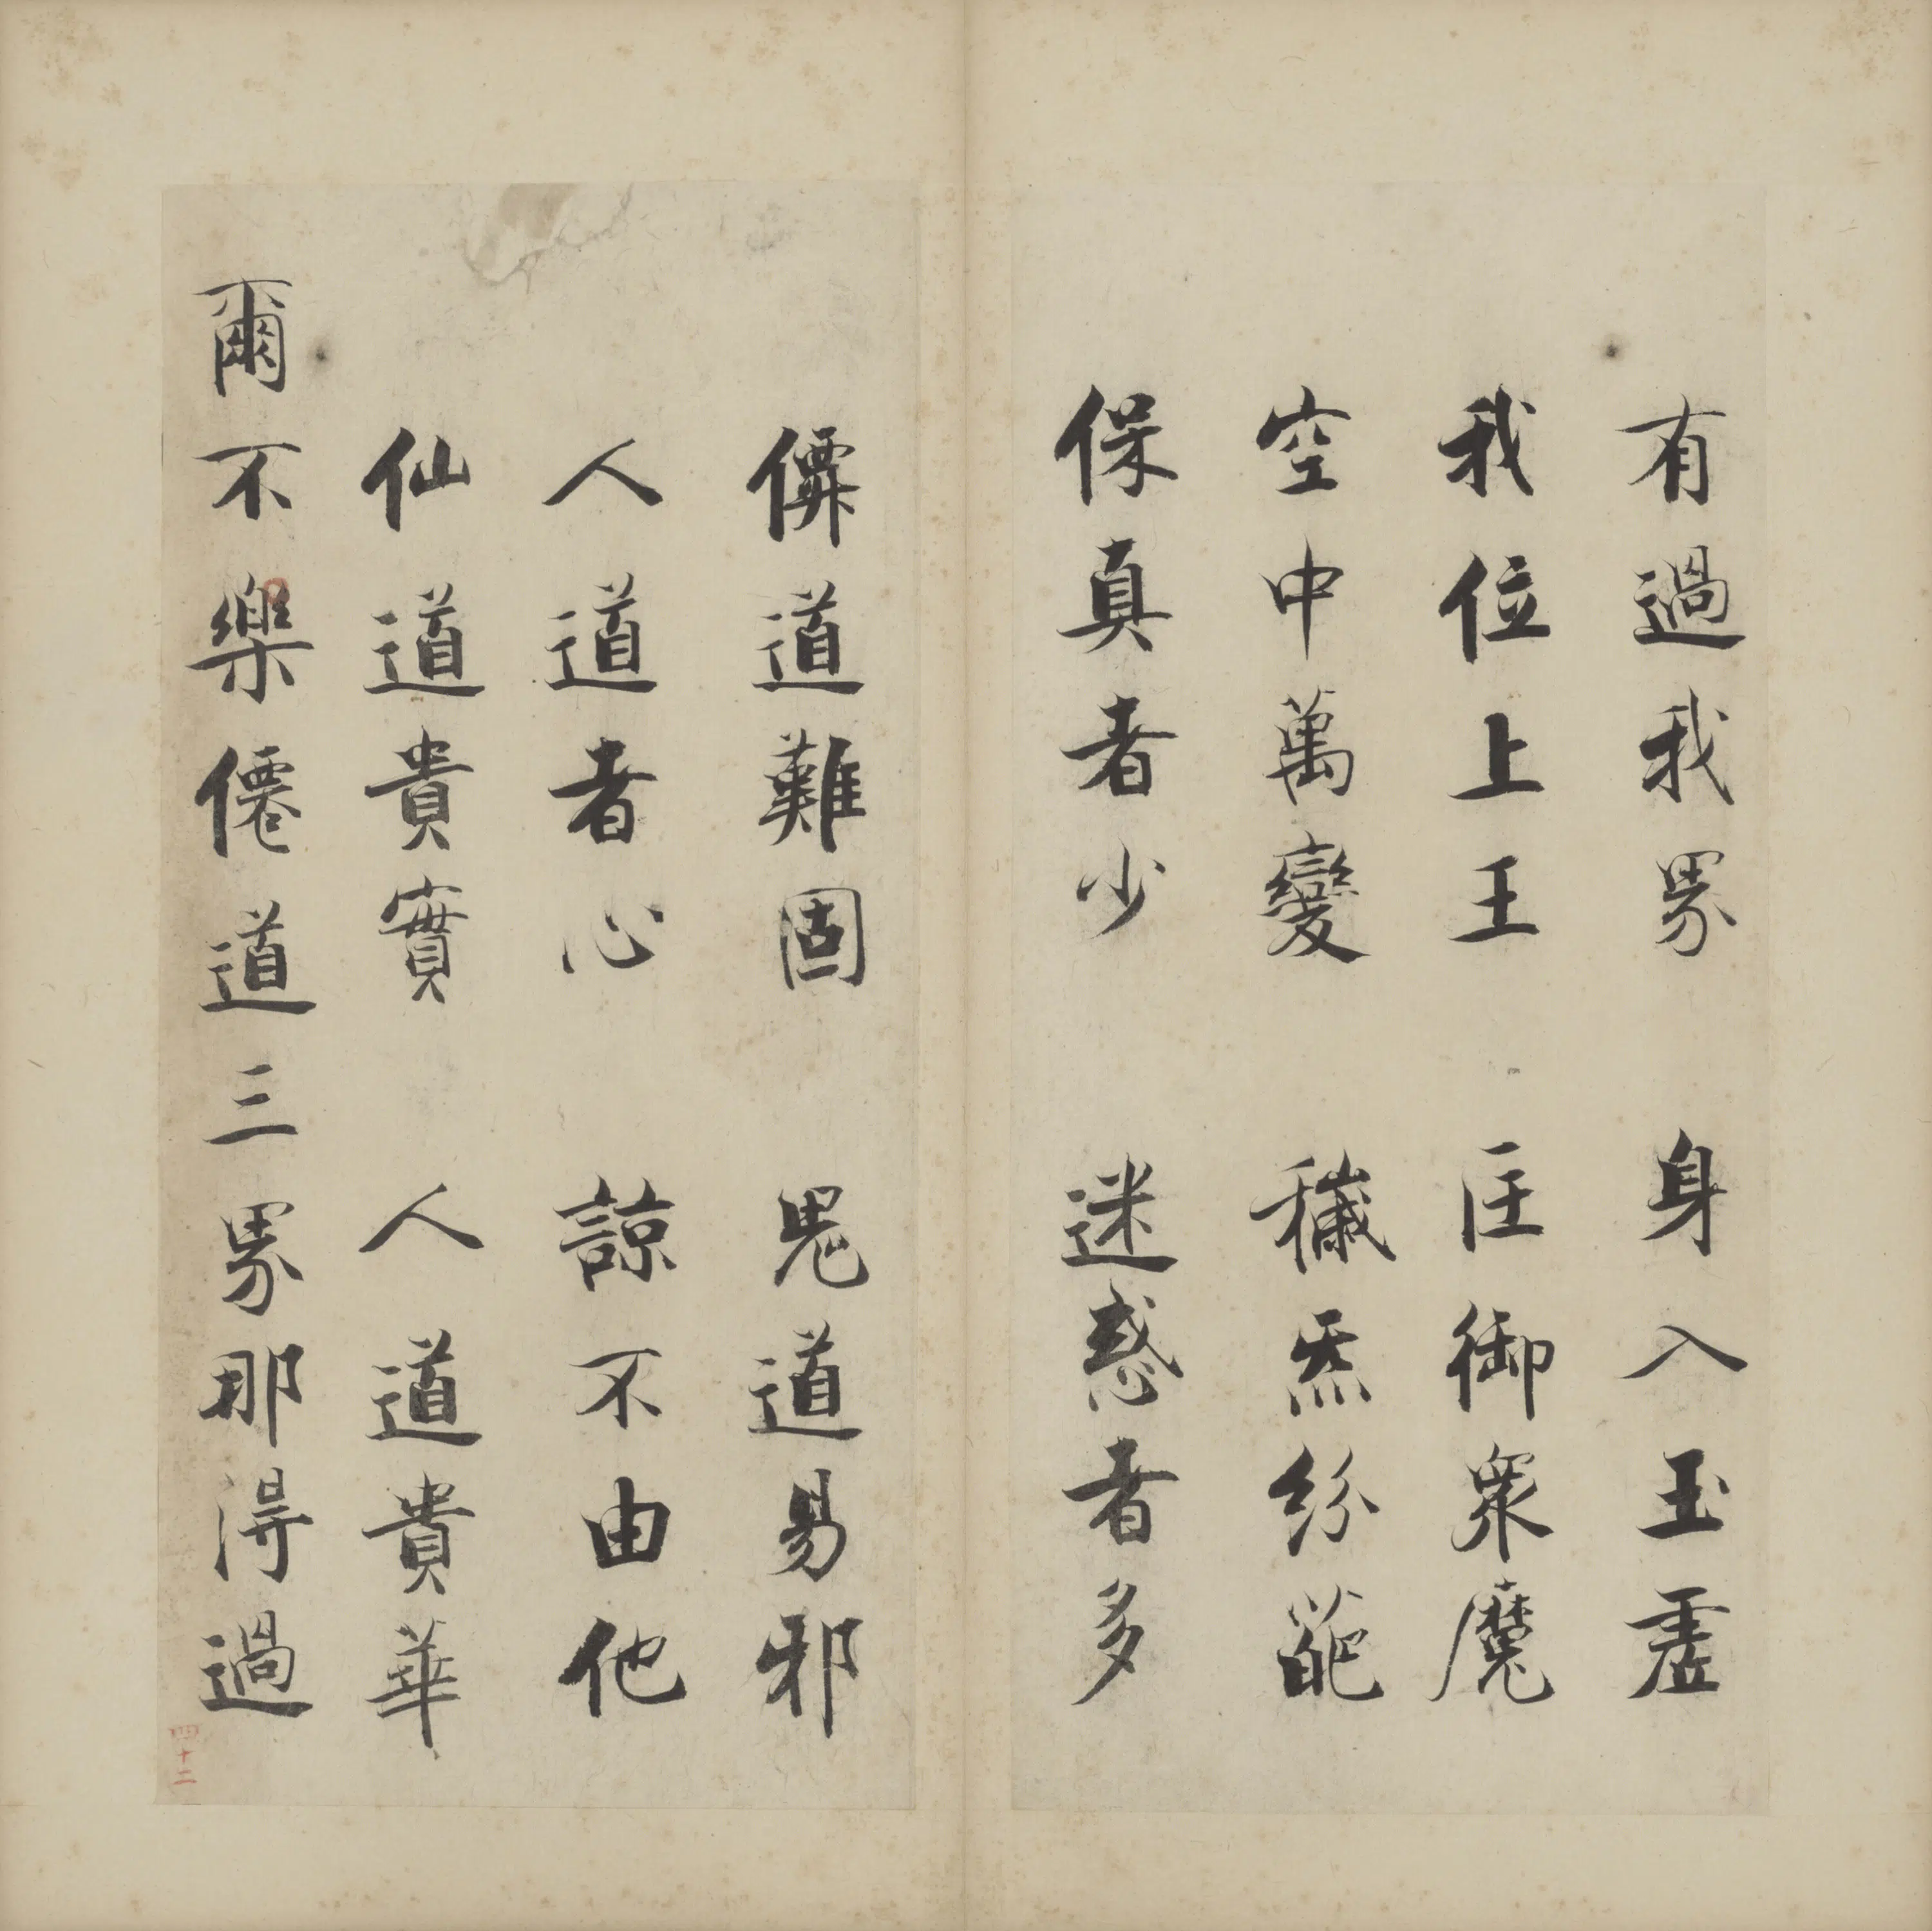 有過我界 身入玉虛
我位上王 匡御衆魔
空中萬變 穢炁紛葩
保真者少 迷惑者多
僊道難固 鬼道易邪
人道者心 諒不由他
仙道貴實 人道貴華
爾不樂僊道三界那得過
四十二